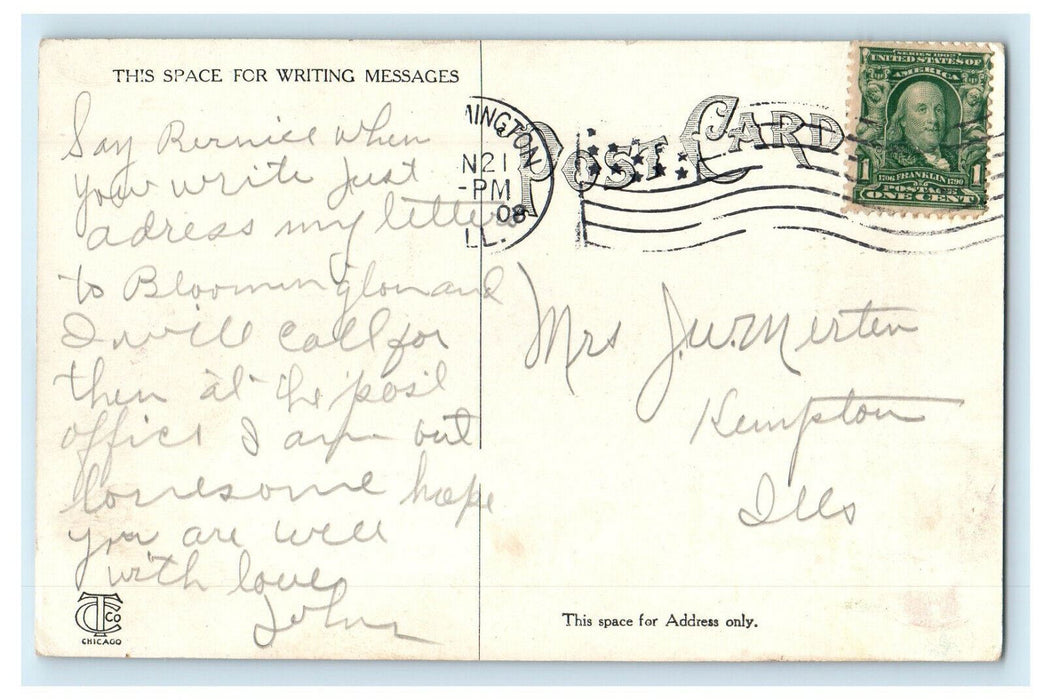 THIS SPACE FOR WRITING MESSAGES
Say Bernice when
you write just
adress my letters
to Bloomington and
I will call for
then at the post
office I am out
lonesome hope
you are well
with love
John
TC CO
CHICAGO
MINGTON
N21
-PM
08
LL.
POST CARD
SERIES 1902
UNITED STATES OF
AMERICA
1 1706 FRANKLIN 1790 1
POSTAGE
ONE CENT
Mrs J.W. Merten
Kempton
Ills
This space for Address only.